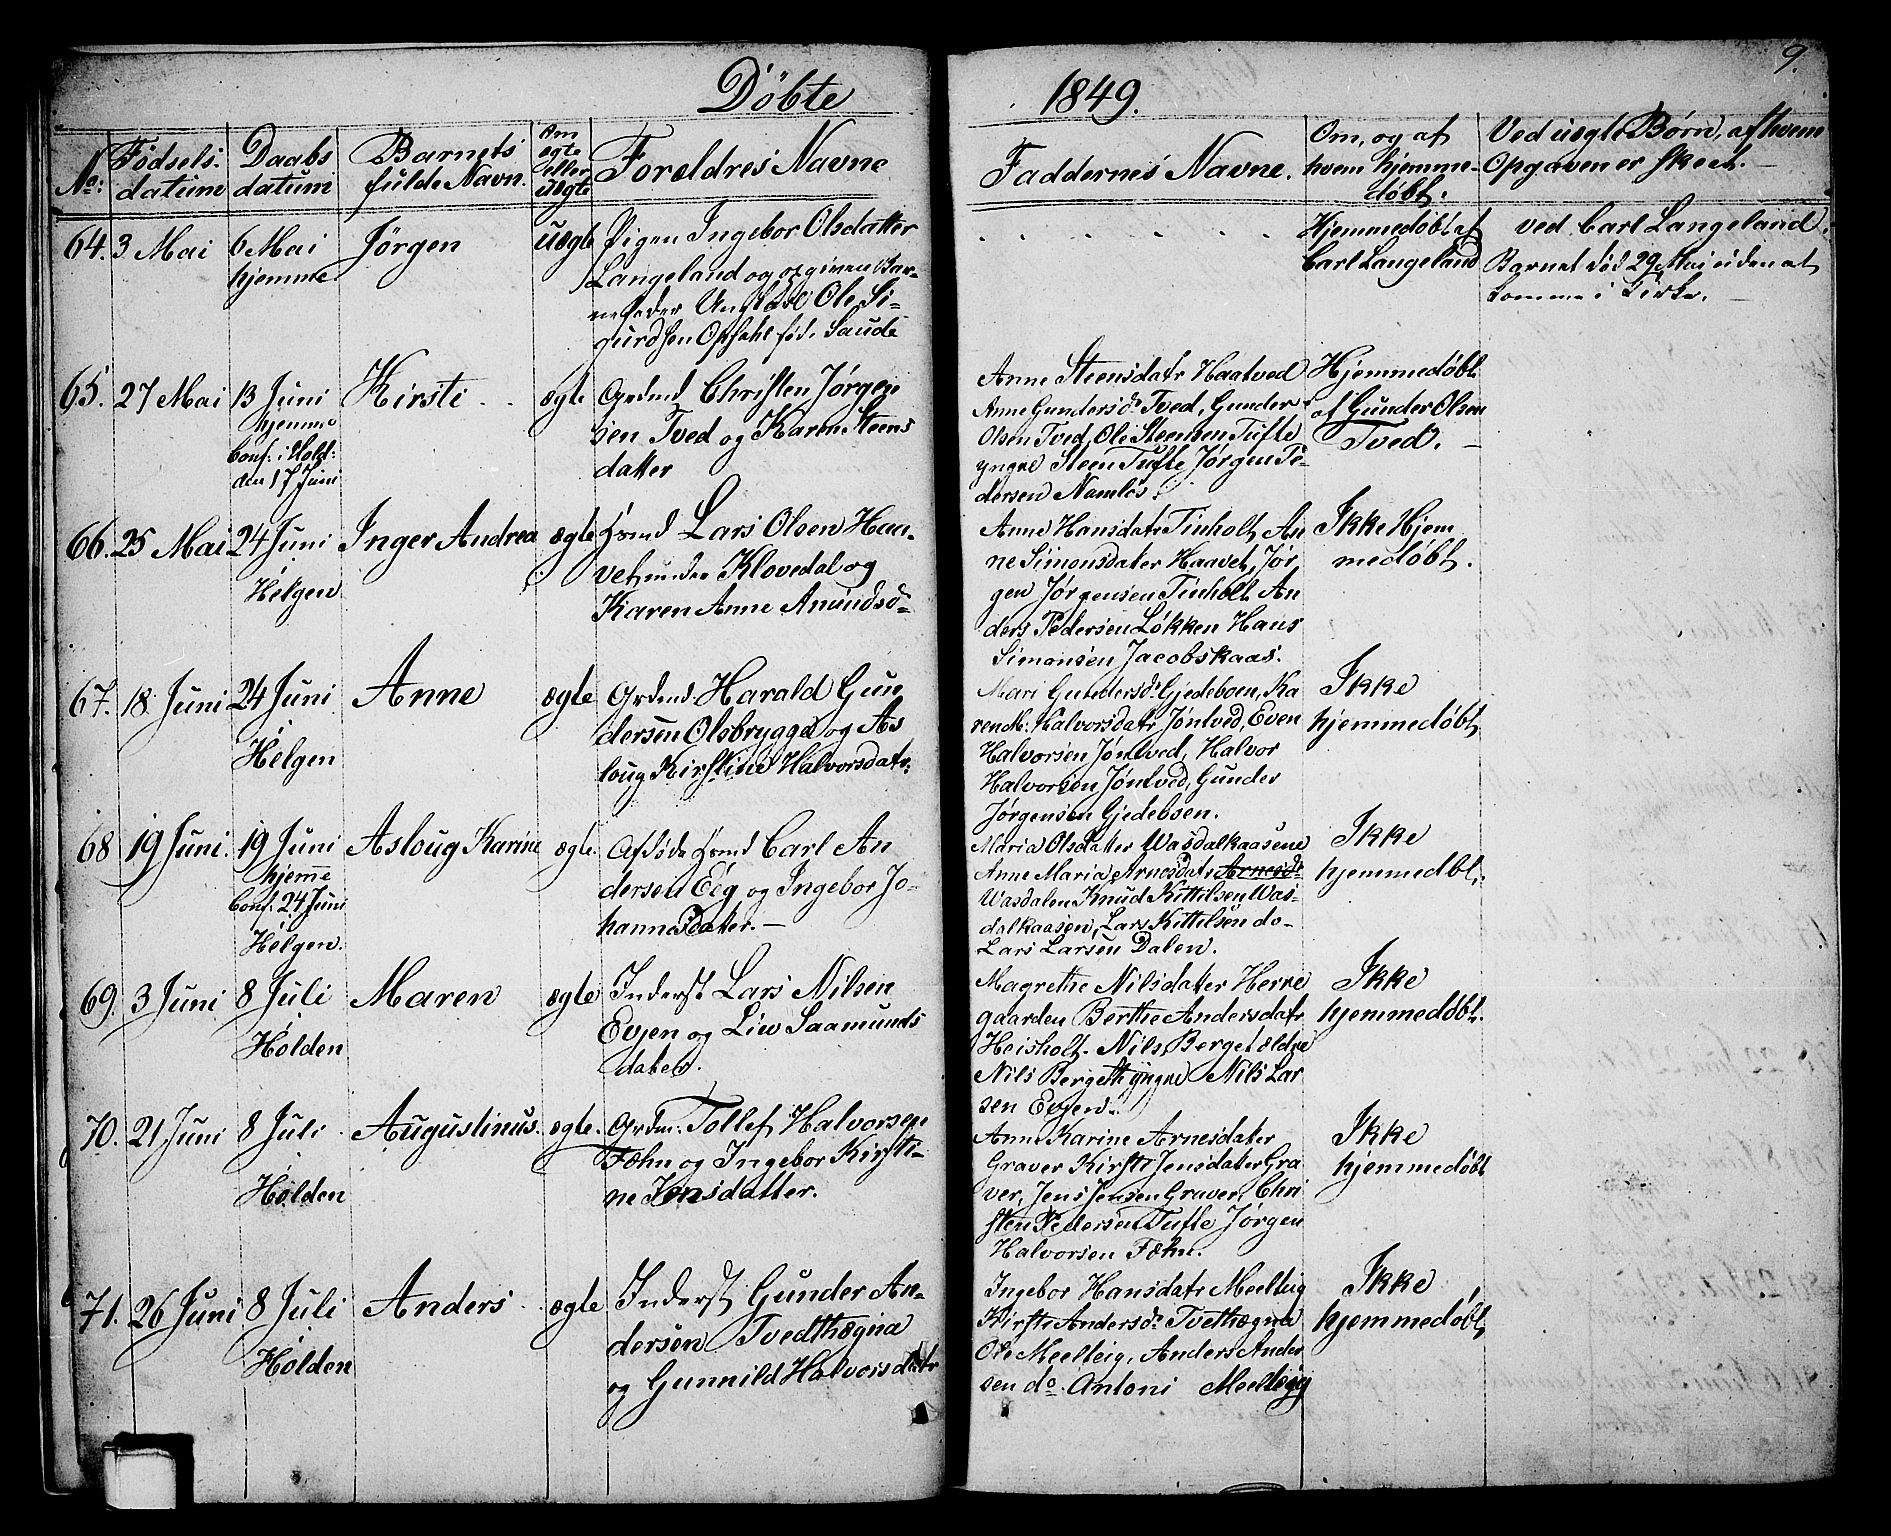 9.
Döbte 1849.
No:
Födsels-
datum
Daabs
datum
Barnets
fulde Navn.
Om
ægte
eller
uægte
Forældres Navne
Faddernes Navne.
Om, og af
hvem hjemme-
døbt.
Ved uægte Børn, af hvem
Opgaven er skeet.
64. 3 Mai
6 Mai
hjemme
Jörgen
uægte
Pigen Ingebor Olsdatter
Langeland og opgiven Bar-
nefader Ungkarl Ole Si-
gurdsen Opsahl fød. Saude
Hjemmedøbt af
Carl Langeland
ved Carl Langeland.
Barnet død 29 Mai uden at
komme i Kirke.
65. 27 Mai
13 Juni
hjemme
Conf: i Hold:
den 17 Juni
Kirsti
ægte
Grdmd Christen Jörgen
sen Tved og Karen Steens
datter
Anne Steensdatr Haatved
Anne Gundersdr Tved, Gunder
Olsen Tved, Ole Steensen Tufte
yngre Steen Tufte Jørgen Pe-
dersen Namløs.
Hjemmedøbt
af Gunder Olsen
Tved.
66. 25 Mai
24 Juni
Helgen
Inger Andrea
ægte
Hsmd Lars Olsen Haa-
vet under Klovedal og
Karen Anne Amundsd-
Anne Hansdatr Tinholt An
ne Simonsdater Haavet, Jør
gen Jørgensen Tinholt An
ders Pedersen Løkken Hans
Simonsen Jacobskaas.
Ikke Hjem
medøbt.
67. 18 Juni
24 Juni
Helgen
Anne
ægte
Grdmd Harald Gun
dersen Olsbrygge og As
loug Kirstine Halvorsdatr:
Mari Gundersdr Gjedeboen, Ka
ren M: Halvorsdatr Jøntved, Even
Halvorsen Jøntved, Halvor
Halvorsen Jøntved, Gunder
Jørgensen Gjedebøen.
Ikke
hjemmedøbt
68 19 Juni.
19 Juni
hjemme
Conf. 24 Juni
Helgen.
Asloug Karine
ægte.
Afdøde Hsmd Carl An
dersen Eeg og Ingebor Jo-
hannesdatter.
Maria Olsdatter Wasdalkaasene
Anne Maria Arnesdatr Arnesdr
Wasdalen Knud Kittilsen Was-
dalkaasen, Lars Kittilsen do-
Lars Larsen Dalen.
Ikke
hjemmedbt.
69. 3 Juni
8 Juli
Holden
Maren
ægte
Inderst Lars Nilsen
Evjen og Liv Saamunds
dater.
Magrethe Nilsdatter Herre
gaarden Berthe Andersdatr
Heisholt. Nils Berget ældre
Nils Berget yngre Nils Lar
sen Evjen.
Ikke
hjemmedøbt.
70. 21 Juni
8 Juli
Holden
Augustinus.
ægte.
Grdm: Tollef Halvorsen
Fæhn og Ingebor Kirsti-
ne Jensdatter.
Anne Karine Arnesdater
Graver Kirsti Jensdater Gra
ver, Jens Jensen Graver, Chri
sten Pedersen Tufte Jørgen
Halvorsen Fæhn.
Ikke
hjemmedøbt
71. 26 Juni
8 Juli
Holden
Anders
ægte
Inderst Gunder An-
dersen Tvedthægna
og Gunnild Halvorsdatr
Ingebor Hansdatr Meelteig
Kirsti Andersdr Tvethægna
Ole Meelteig, Anders Ander
sen do. Antoni Meelteig
Ikke
hjemmedøbt